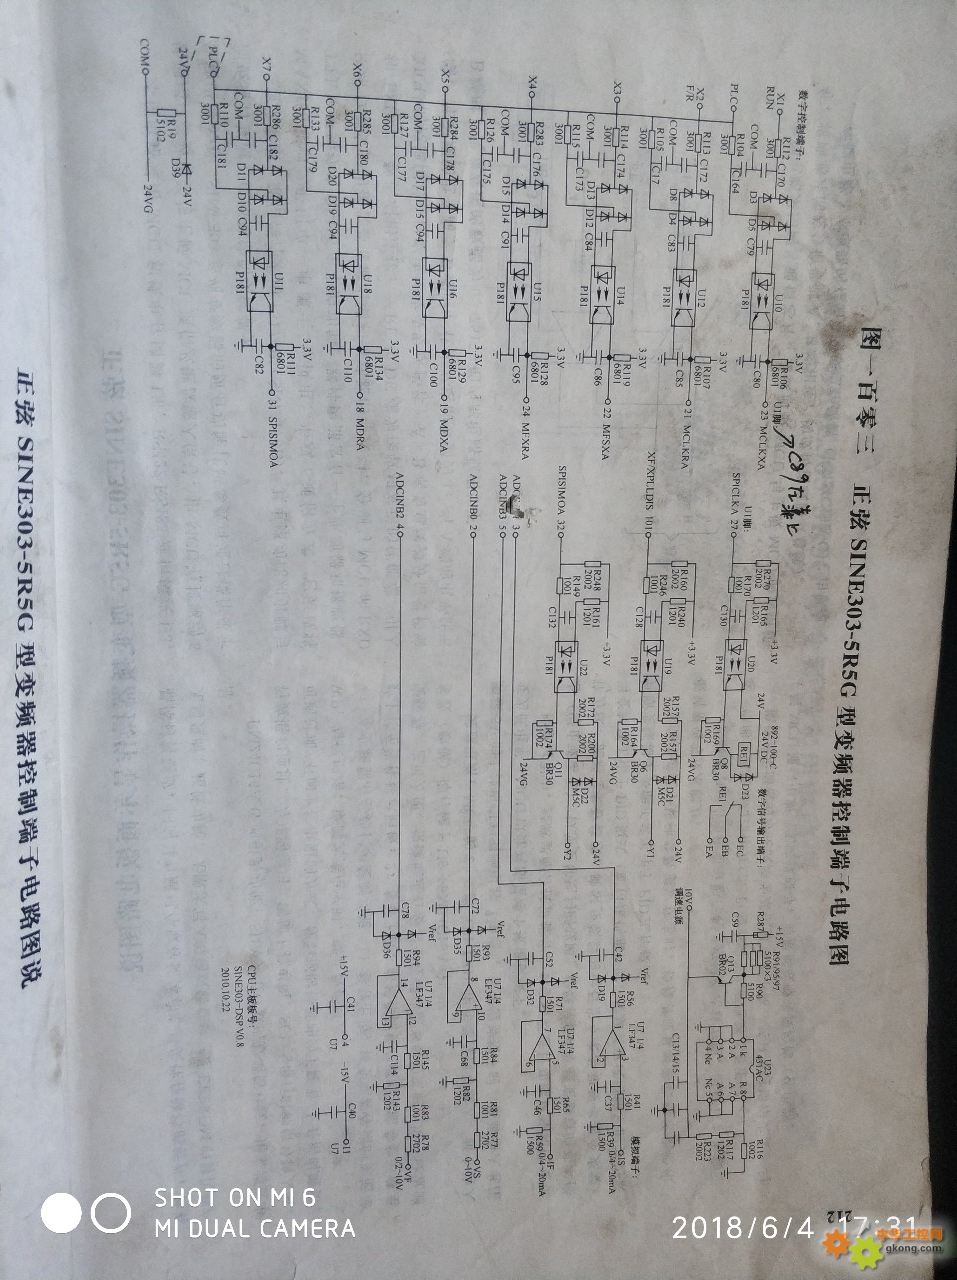 图一百零三 正弦 SINE303-5R5G 型变频器控制端子电路图
212
数字控制端子:
X1
RUN
R112
3001
C170
PLC
R104
3001
C164
COM
D3
D5
C79
U10
P181
3.3V
R106
6801
C80
U1脚
23 MCLKXA
X2
F/R
R113
3001
C172
R105
3001
C17
COM
D8
D4
C83
U12
P181
3.3V
R107
6801
C85
21 MCLKRA
X3
R114
3001
C174
R115
3001
C173
COM
D13
D12
C84
U14
P181
3.3V
R119
6801
C86
22 MFSXA
X4
R283
3001
C176
R126
3001
C175
COM
D15
D14
C91
U15
P181
3.3V
R128
6801
C95
24 MFXRA
X5
R284
3001
C178
R127
3001
C177
COM
D17
D15
C94
U16
P181
3.3V
R129
6801
C100
19 MDXA
X6
R285
3001
C180
R133
3001
C179
COM
D20
D19
C94
U18
P181
3.3V
R134
6801
C110
18 MDRA
X7
R286
3001
C182
R110
3001
C181
COM
D11
D10
C94
U11
P181
3.3V
R111
6801
C82
31 SPISIMOA
PLC
24V
D39
24V
COM
R19
5102
24VG
U1脚:
SPICLKA 27
R270
2002
R170
1001
R165
1201
C130
+3.3V
U20
P181
24V
892-100-C
24V DC
RE1
D23
Q8
BR30
R169
1002
24VG
数字信号输出端子:
RE1
EC
EB
EA
XF/XPLLDIS 101
R160
2002
R246
1001
R240
1201
C128
+3.3V
U19
P181
R157
2002
R157
2002
R164
1002
Q6
BR30
D21
M5C
24VG
24V
Y1
SPISIMOA 32
R248
2002
R149
1001
R161
1201
C132
+3.3V
U22
P181
R172
2002
R200
2002
R174
1002
Q11
BR30
D22
M5C
24VG
24V
Y2
3
ADCINB3 5
ADCINB0 2
ADCINB2 4
10V
调速电源
+15V
R287
C59
R91/95/97
5100X3
Q13
BR02
R90
5100
U23
431AC
1 k
2 A
3 A
4 Nc
R 8
A 7
A 6
Nc 5
R116
1002
R117
1202
R223
2002
C13/14/15
模拟端子:
C42
Vref
D19
R56
1501
U7 1/4
LF347
1
2
3
R41
1501
C37
R39
1500
IS
0/4~20mA
C52
Vref
D32
R71
1501
U7 1/4
LF347
7
6
5
R65
1501
C46
R59
1500
IF
0/4~20mA
C72
Vref
D35
R93
1501
U7 1/4
LF347
8
9
10
R84
1501
C68
R82
1202
R81
1001
R77
2702
VS
0~10V
C78
Vref
D36
R94
1501
U7 1/4
LF347
14
13
12
R145
1501
C114
R143
1202
R83
1001
R78
2702
VF
0/2~10V
+15V
C41
4
U7
-15V
C40
11
U7
CPU主板板号:
SINE303-DSP V0.8
2010.10.22
正弦 SINE303-5R5G 型变频器控制端子电路图说
SHOT ON MI 6
MI DUAL CAMERA
2018/6/4 17:31
中华工控网
gkong.com